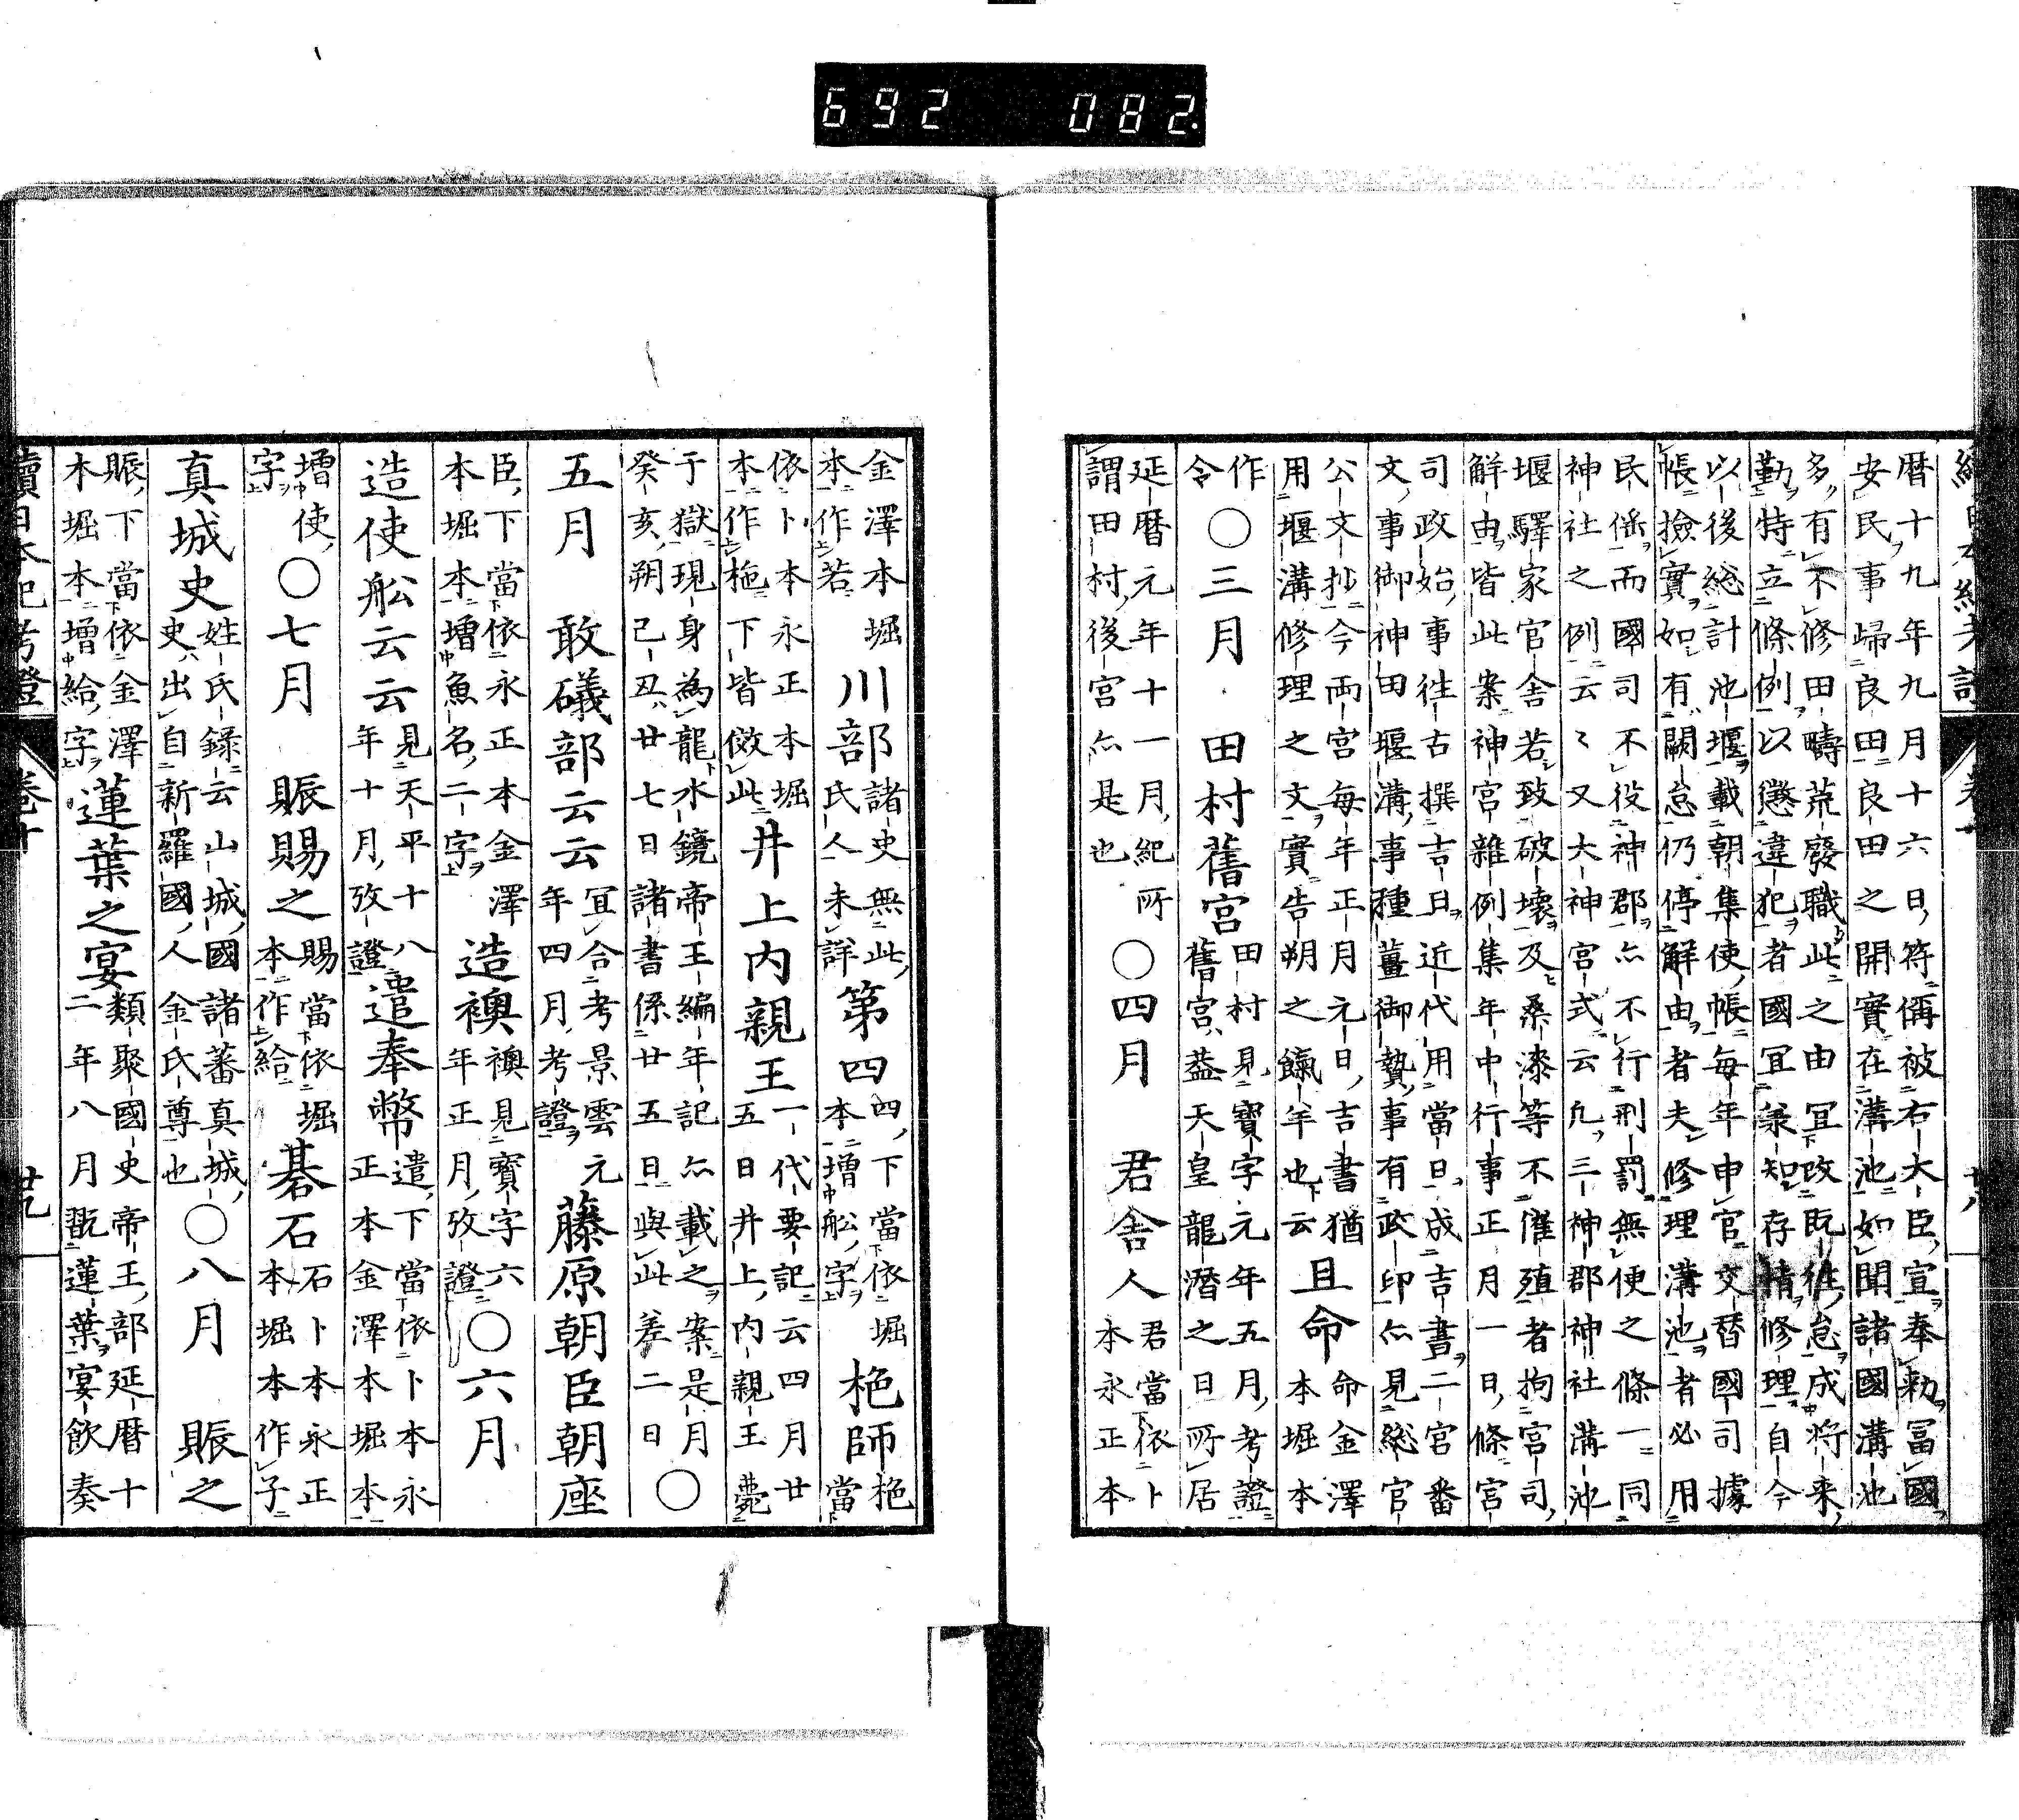 692 082.
暦十九年九月十六日符偁被右大臣宣奉勅冨國
安民事歸良田良田之開實在溝池如聞諸國溝池
多有不修田疇荒廢職此之由冝改既往怠成將来
勤特立條例以懲違犯者國冝兼知存情修理自今
以後総計池堰載朝集使帳毎年申官交替國司據
帳撿實如有闕怠仍停解由者夫修理溝池者必用
民徭而國司不役神郡亦不行刑罰無便之條一同
神社之例云〻又大神宮式云凢三神郡神社溝池
堰驛家官舎若致破壊及桑漆等不催殖者拘宮司
解由皆此案神宮雜例集年中行事正月一日條宮
司政始事徃古撰吉日近代用當日成吉書二宮番
文事御神田堰溝事種薑御贄事有政印亦見総官
公文抄今両宮毎年正月元日吉書猶
用堰溝修理之文實告朔之餼羊也云
且命
命金澤
本堀本
作
令
〇三月 田村舊宮
田村見寶字元年五月考證
舊宮益天皇龍潛之日所居
延暦元年十一月紀所
謂田村後宮亦是也
〇四月 君舎人
君當依卜
本永正本
金澤本堀
本作若
川部
諸史無此
氏人未詳
第四
四下當依堀
本増船字
栬師
栬當
依卜本永正本堀
本作柂下皆倣此
井上内親王
一代要記云四月廿
五日井上内親王薨
于獄現身為龍水鏡帝王編年記亦載之案是月
癸亥朔己丑廿七日諸書係廿五日與此差二日
〇
五月 敢礒部云云
冝合考景雲元
年四月考證
藤原朝臣朝座
臣下當依永正本金澤
本堀本増魚名二字
造襖
襖見寶字六
年正月攷證
〇六月
造使舩云云
見天平十八
年十月攷證
遣奉幣
遣下當依卜本永
正本金澤本堀本
増使
字
〇七月 賑賜之
賜當依堀
本作給
碁石
石卜本永正
本堀本作子
真城史
姓氏録云山城國諸蕃真城
史出自新羅國人金氏尊也
〇八月 賑之
賑下當依金澤
本堀本増給字
蓮葉之宴
類聚國史帝王部延暦十
二年八月翫蓮葉宴飲奏
續日本紀考證 卷十 廿九